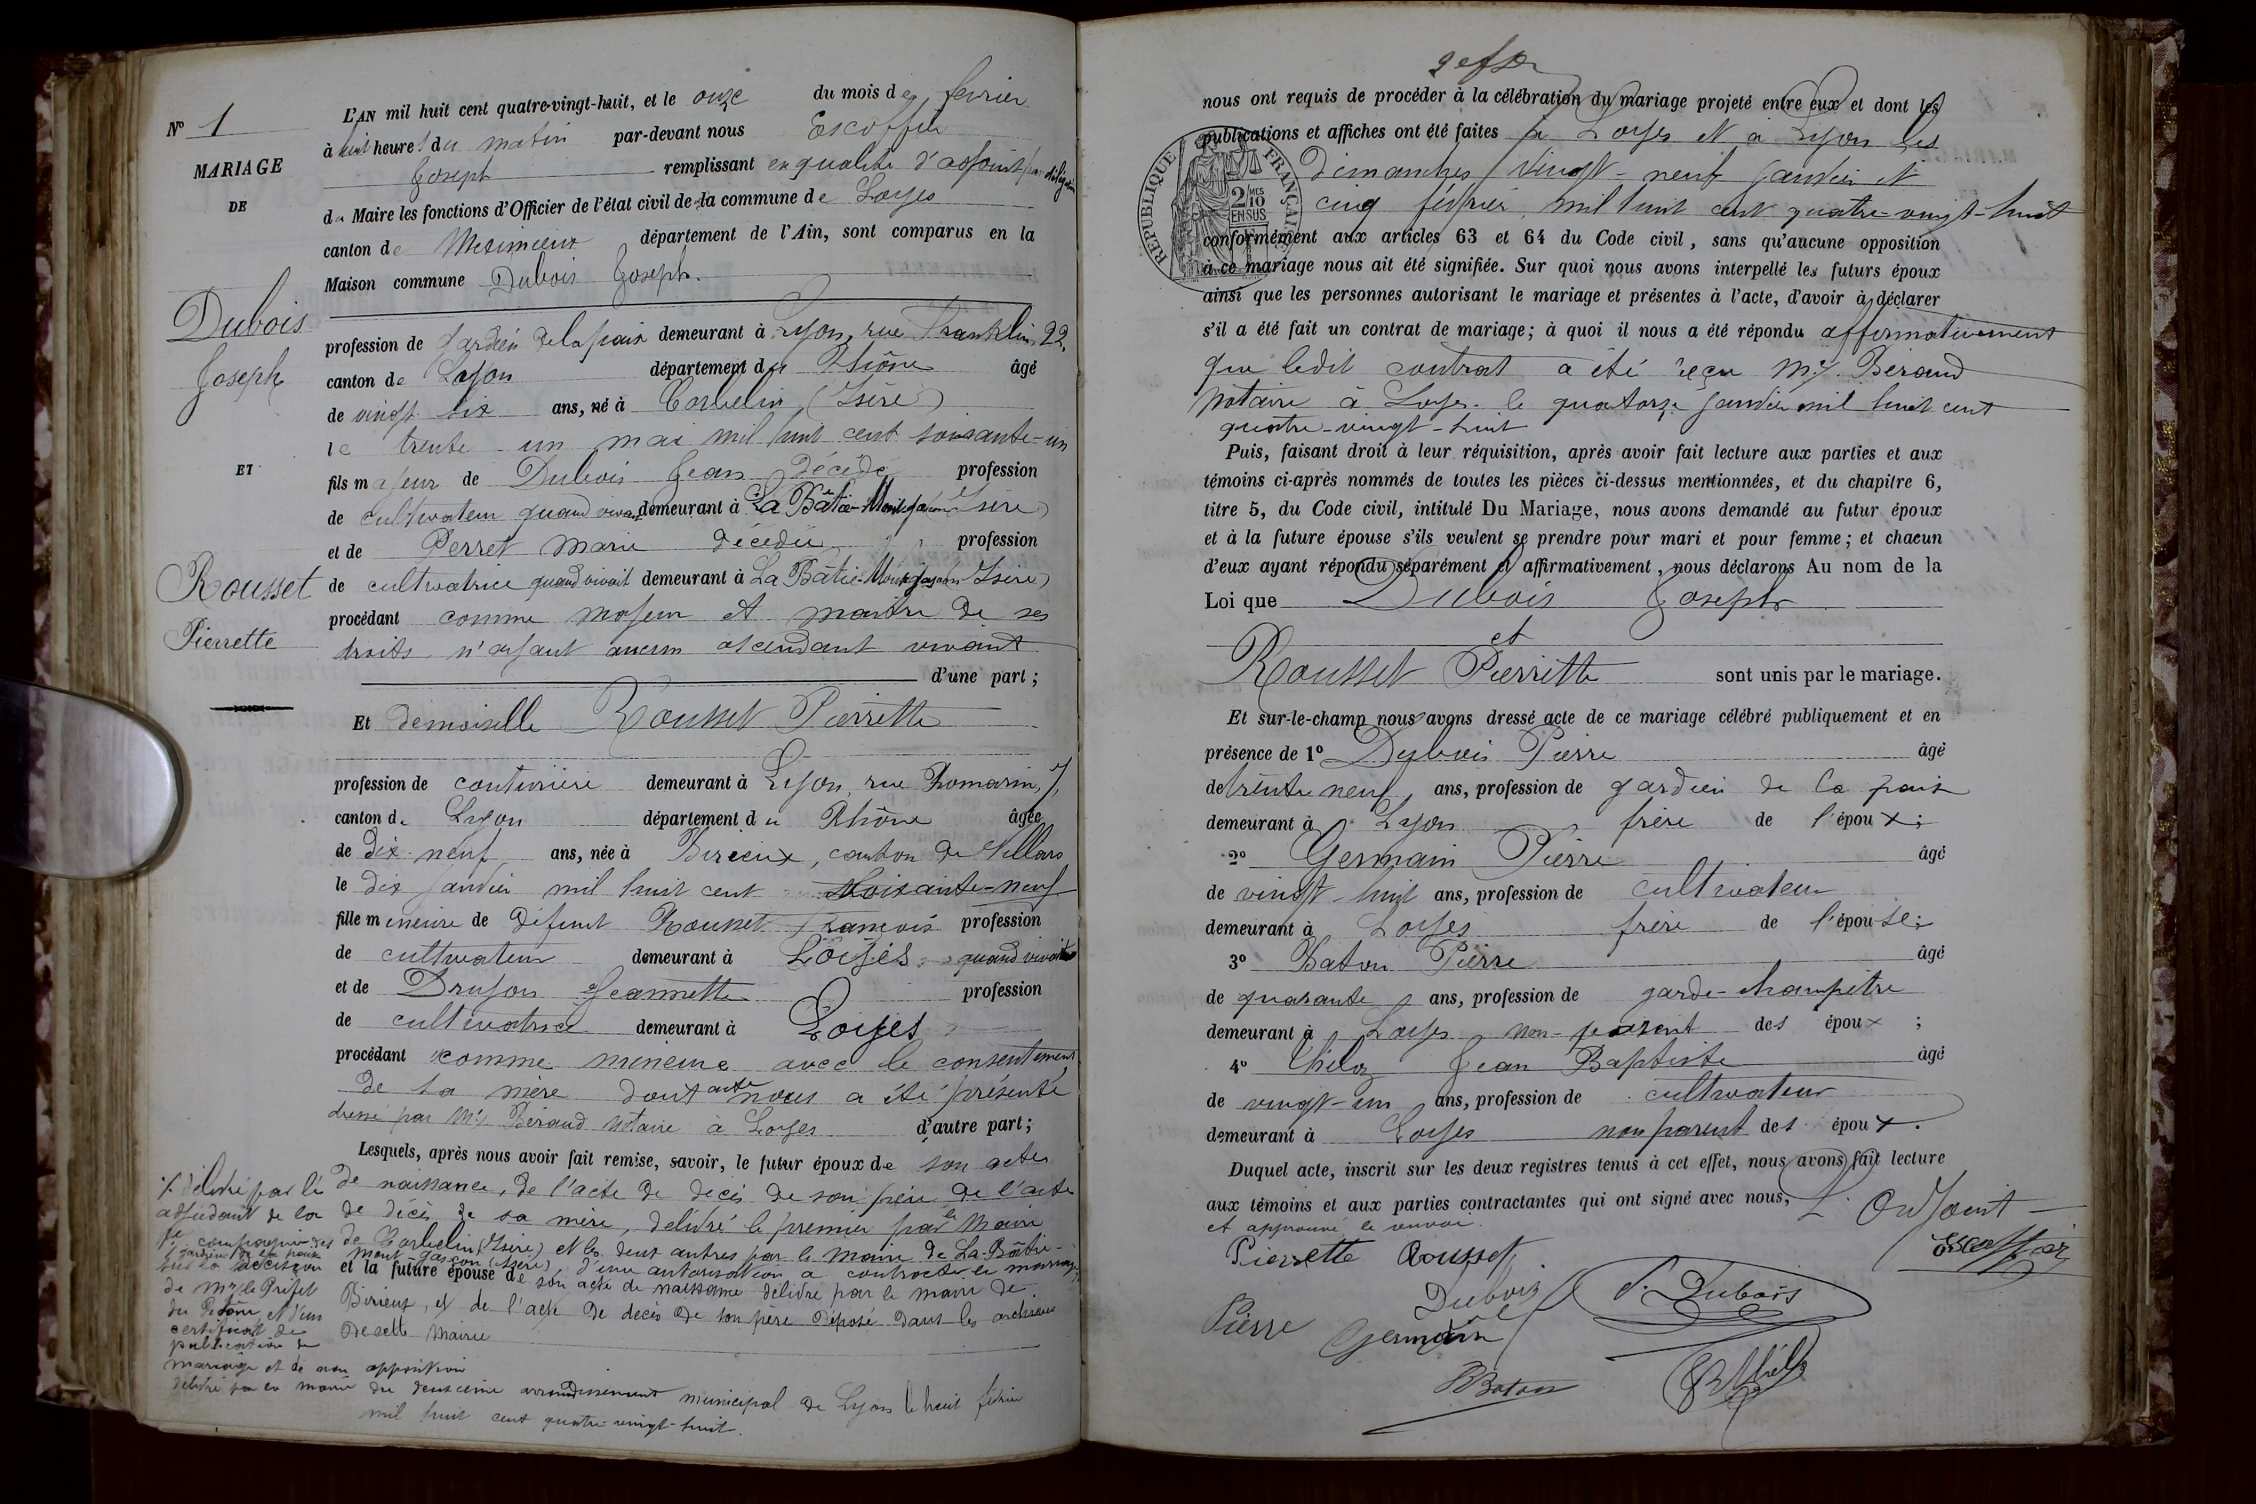 N° 1
MARIAGE
DE
Dubois
Joseph
ET
Rousset
Pierrette
L'AN mil huit cent quatre-vingt-huit, et le onze du mois de février
à huit heures du matin par-devant nous Escoffier
Joseph remplissant en qualité d'adjoint par délégation
du Maire les fonctions d'Officier de l'état civil de la commune de Loyes
canton de Meximieux département de l'Ain, sont comparus en la
Maison commune Dubois Joseph.
profession de gardien de la paix demeurant à Lyon, rue Franklin 22,
canton de Lyon département du Rhône âgé
de vingt six ans, né à Corbelin (Isère)
le trente-un mai mil huit cent soixante-un
fils majeur de Dubois Jean décédé profession
de cultivateur quand vivait demeurant à La Bâtie-Montgascon Isère)
et de Perret Marie décédée profession
de cultivatrice quand vivait demeurant à La Bâtie-Montgascon Isère)
procédant comme majeur et maitre de ses
droits n'ayant aucun ascendant vivant
d'une part ;
Et demoiselle Rousset Pierrette
profession de couturière demeurant à Lyon, rue Romarin, 7,
canton de Lyon département du Rhône âgée
de dix-neuf ans, née à Birieux, canton de Villars
le dix janvier mil huit cent soixante-neuf
fille mineure de défunt Rousset François profession
de cultivateur demeurant à Loyes quand vivait
et de Drujon Jeannette profession
de cultivatrice demeurant à Loyes
procédant comme mineure avec le consentement
de sa mère dont acte nous a été présenté
dressé par Me Béraud notaire à Loyes d'autre part ;
Lesquels, après nous avoir fait remise, savoir, le futur époux de son acte
de naissance, de l'acte de décès de son père de l'acte
de décès de sa mère, délivré le premier par le Maire
de Corbelin (Isère) et les deux autres par le maire de La Bâtie-
Montgascon (Isère) d'une autorisation à contracter le mariage
et la future épouse de son acte de naissance délivré par le maire de
Birieux, et de l'acte de décès de son père déposé dans les archives
de cette mairie
délivré par le
adjudant de la
compagnie des
gardiens de la paix
sur la décision
de Mr le Préfet
du Rhône, et d'un
certificat de
publication de
mariage et de non opposition
délivré par la mairie du deuxième arrondissement municipal de Lyon le huit février
mil huit cent quatre-vingt-huit.
nous ont requis de procéder à la célébration du mariage projeté entre eux et dont les
publications et affiches ont été faites à Loyes et à Lyon les
dimanches vingt-neuf janvier et
cinq février mil huit cent quatre-vingt-huit
conformément aux articles 63 et 64 du Code civil, sans qu'aucune opposition
à ce mariage nous ait été signifiée. Sur quoi nous avons interpellé les futurs époux
ainsi que les personnes autorisant le mariage et présentes à l'acte, d'avoir à déclarer
s'il a été fait un contrat de mariage; à quoi il nous a été répondu affirmativement
que ledit contrat a été reçu Me Béraud
Notaire à Loyes le quatorze janvier mil huit cent
quatre-vingt-huit
Puis, faisant droit à leur réquisition, après avoir fait lecture aux parties et aux
témoins ci-après nommés de toutes les pièces ci-dessus mentionnées, et du chapitre 6,
titre 5, du Code civil, intitulé Du Mariage, nous avons demandé au futur époux
et à la future épouse s'ils veulent se prendre pour mari et pour femme; et chacun
d'eux ayant répondu séparément et affirmativement, nous déclarons Au nom de la
Loi que Dubois Joseph
et
Rousset Pierrette sont unis par le mariage.
Et sur-le-champ nous avons dressé acte de ce mariage célébré publiquement et en
présence de 1° Dubois Pierre âgé
de trente neuf ans, profession de gardien de la paix
demeurant à Lyon frère de l'époux ;
2° Germain Pierre âgé
de vingt-huit ans, profession de cultivateur
demeurant à Loyes frère de l'épouse ;
3° Baton Pierre âgé
de quarante ans, profession de garde-champêtre
demeurant à Loyes non-parent des époux ;
4° Jean Baptiste âgé
de vingt-un ans, profession de cultivateur
demeurant à Loyes non parent des époux.
Duquel acte, inscrit sur les deux registres tenus à cet effet, nous avons fait lecture
aux témoins et aux parties contractantes qui ont signé avec nous, L'Adjoint
et approuvé le renvoi.
Pierrette Rousset
Escoffier
Dubois
P. Dubois
Pierre Germain
Baton
RÉPUBLIQUE FRANÇAISE
2/10
EN SUS